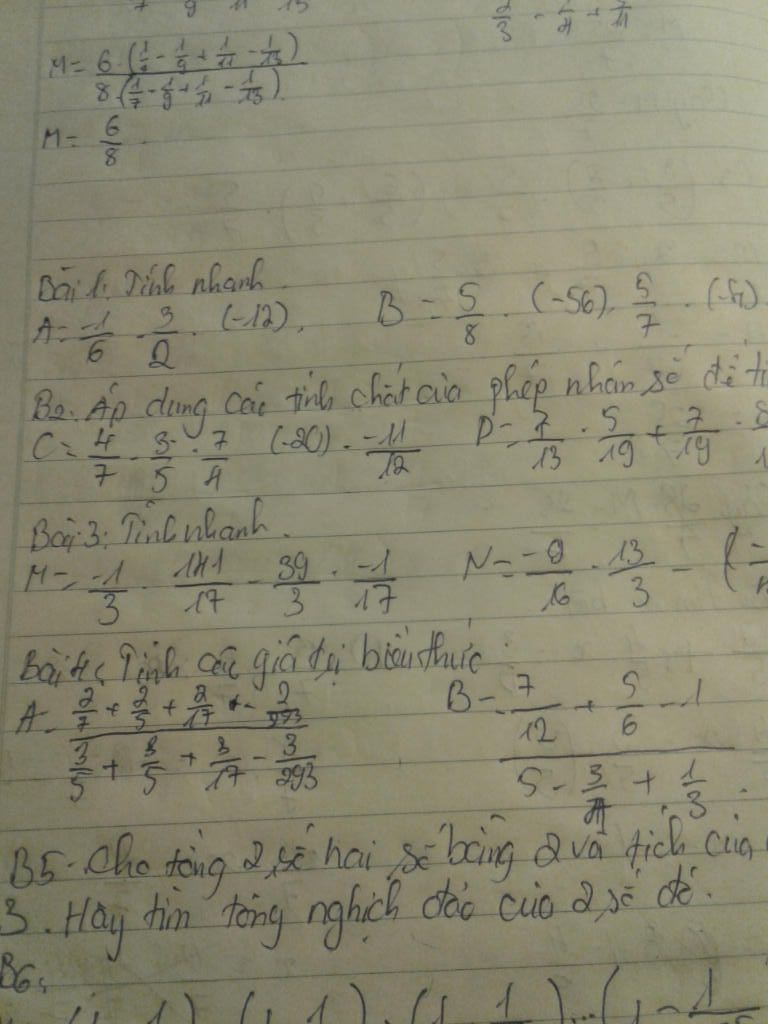 M = 6.(1/7 - 1/9 + 1/11 - 1/13) / 8.(1/7 - 1/9 + 1/11 - 1/13)
M = 6/8
Bài 1: Tính nhanh.
A = -1/6 . 3/2 . (-12), B = 5/8 . (-56). 5/7 .
B2. Áp dụng các tính chất của phép nhân số để
C = 4/7 . 3/5 . 7/4 (-20) . -11/12 D = 7/13 . 5/19 + 7/19 .
Bài 3: Tính nhanh.
M = -1/3 . 141/17 - 39/3 . -1/17 N = -9/16 . 13/3 - (
Bài 4: Tính các giá trị biểu thức
A = 2/7 + 2/5 + 2/17 - 2/293 / 3/5 + 3/5 + 3/17 - 3/293 B = 7/12 + 5/6 - 1 / 5 - 3/4 + 1/3
B5. Cho tổng 2 số hai số bằng 2 và tích của
3. Hãy tìm tổng nghịch đảo của 2 số đó.
B6: